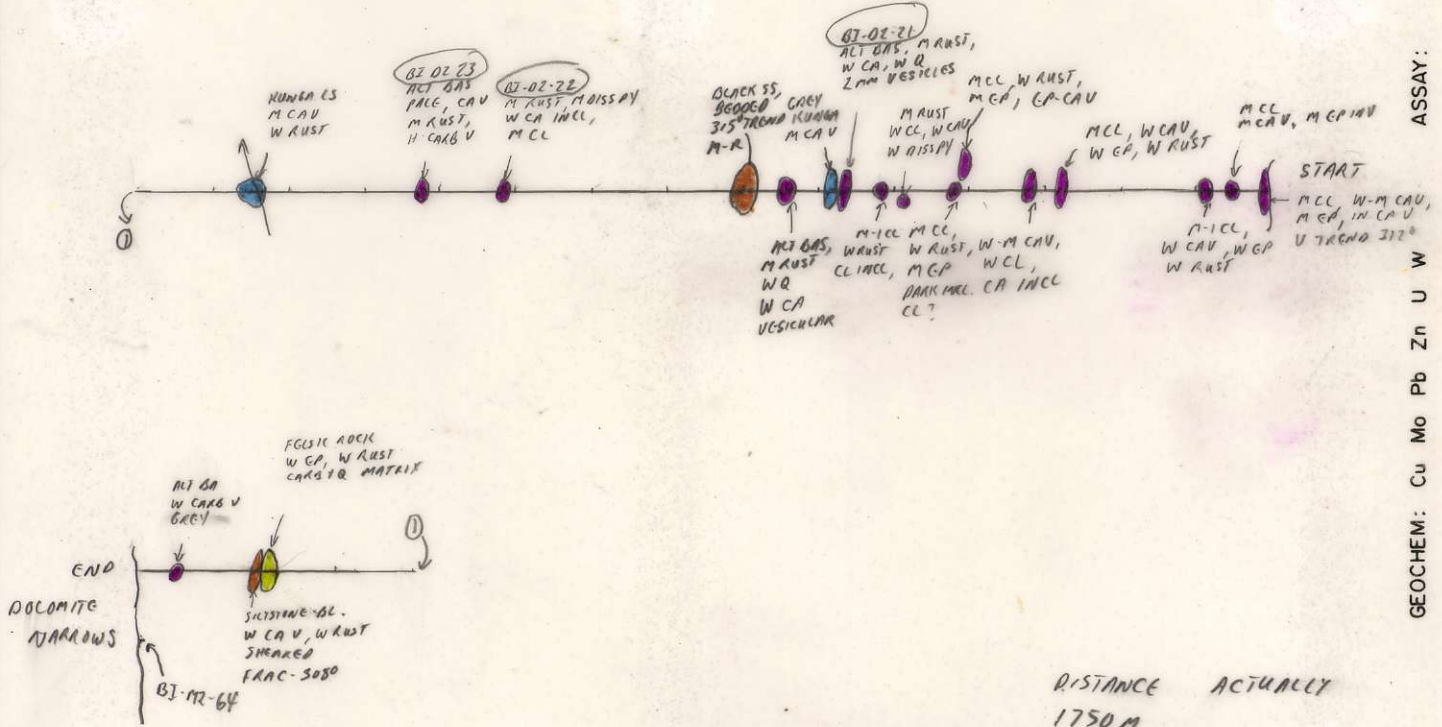 KUNGA LS
M CAV
W RUST
BI 02 23
ALT BAS
PALE, CAV
M RUST,
H CARB V
BI-02-22
M RUST, M DISSPY
W CA INCL,
M CL
BLACK SS,
BEDDED
315° TREND
M-R
GREY
KUNGA
M CAV
BI-02-21
ALT BAS, M RUST,
W CA, W Q
2MM VESICLES
M RUST
W CL, W CAV
W DISSPY
M CL, W RUST,
M EP, EP-CAV
M CL, W CAV,
W EP, W RUST
M CL
M CAV, M EP IN V
START
M CL, W-M CAV,
M EP, IN CA V
V TREND 312°
ALT BAS,
M RUST
W Q
W CA
VESICULAR
M-I CL
W RUST
CL INCL,
M CL,
W RUST,
M EP
DARK INCL.
CL?
W-M CAV,
W CL,
CA INCL
M-I CL,
W CAV, W EP
W RUST
1
ASSAY:
GEOCHEM: Cu Mo Pb Zn U W
FELSIC ROCK
W EP, W RUST
CARB & Q MATRIX
ALT BA
W CARB V
GREY
1
END
DOLOMITE
NARROWS
SILTSTONE-BL.
W CA V, W RUST
SHEARED
FRAC-308°
DISTANCE ACTUALLY
1750 M